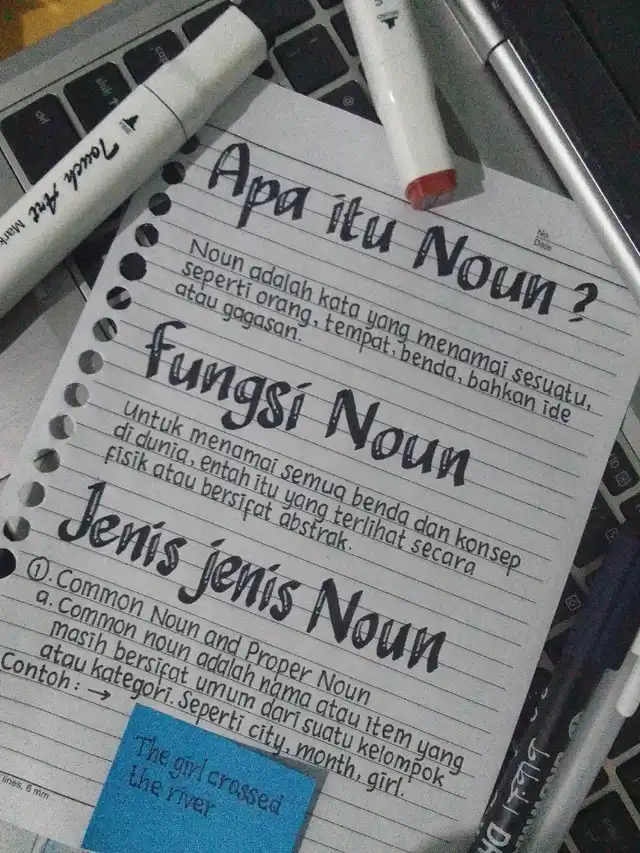 Touch Art Mark
No.
Date
Apa itu Noun ?
Noun adalah kata yang menamai sesuatu,
seperti orang, tempat, benda, bahkan ide
atau gagasan.
Fungsi Noun
Untuk menamai semua benda dan konsep
di dunia, entah itu yang terlihat secara
fisik atau bersifat abstrak.
Jenis jenis Noun
①. Common Noun and Proper Noun
a. Common noun adalah nama atau item yang
masih bersifat umum dari suatu kelompok
atau kategori. Seperti city, month, girl.
Contoh : →
The girl crossed
the river
lines, 6 mm